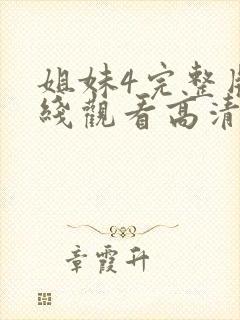 姐妹4完整
綫觀看高清
章霞升